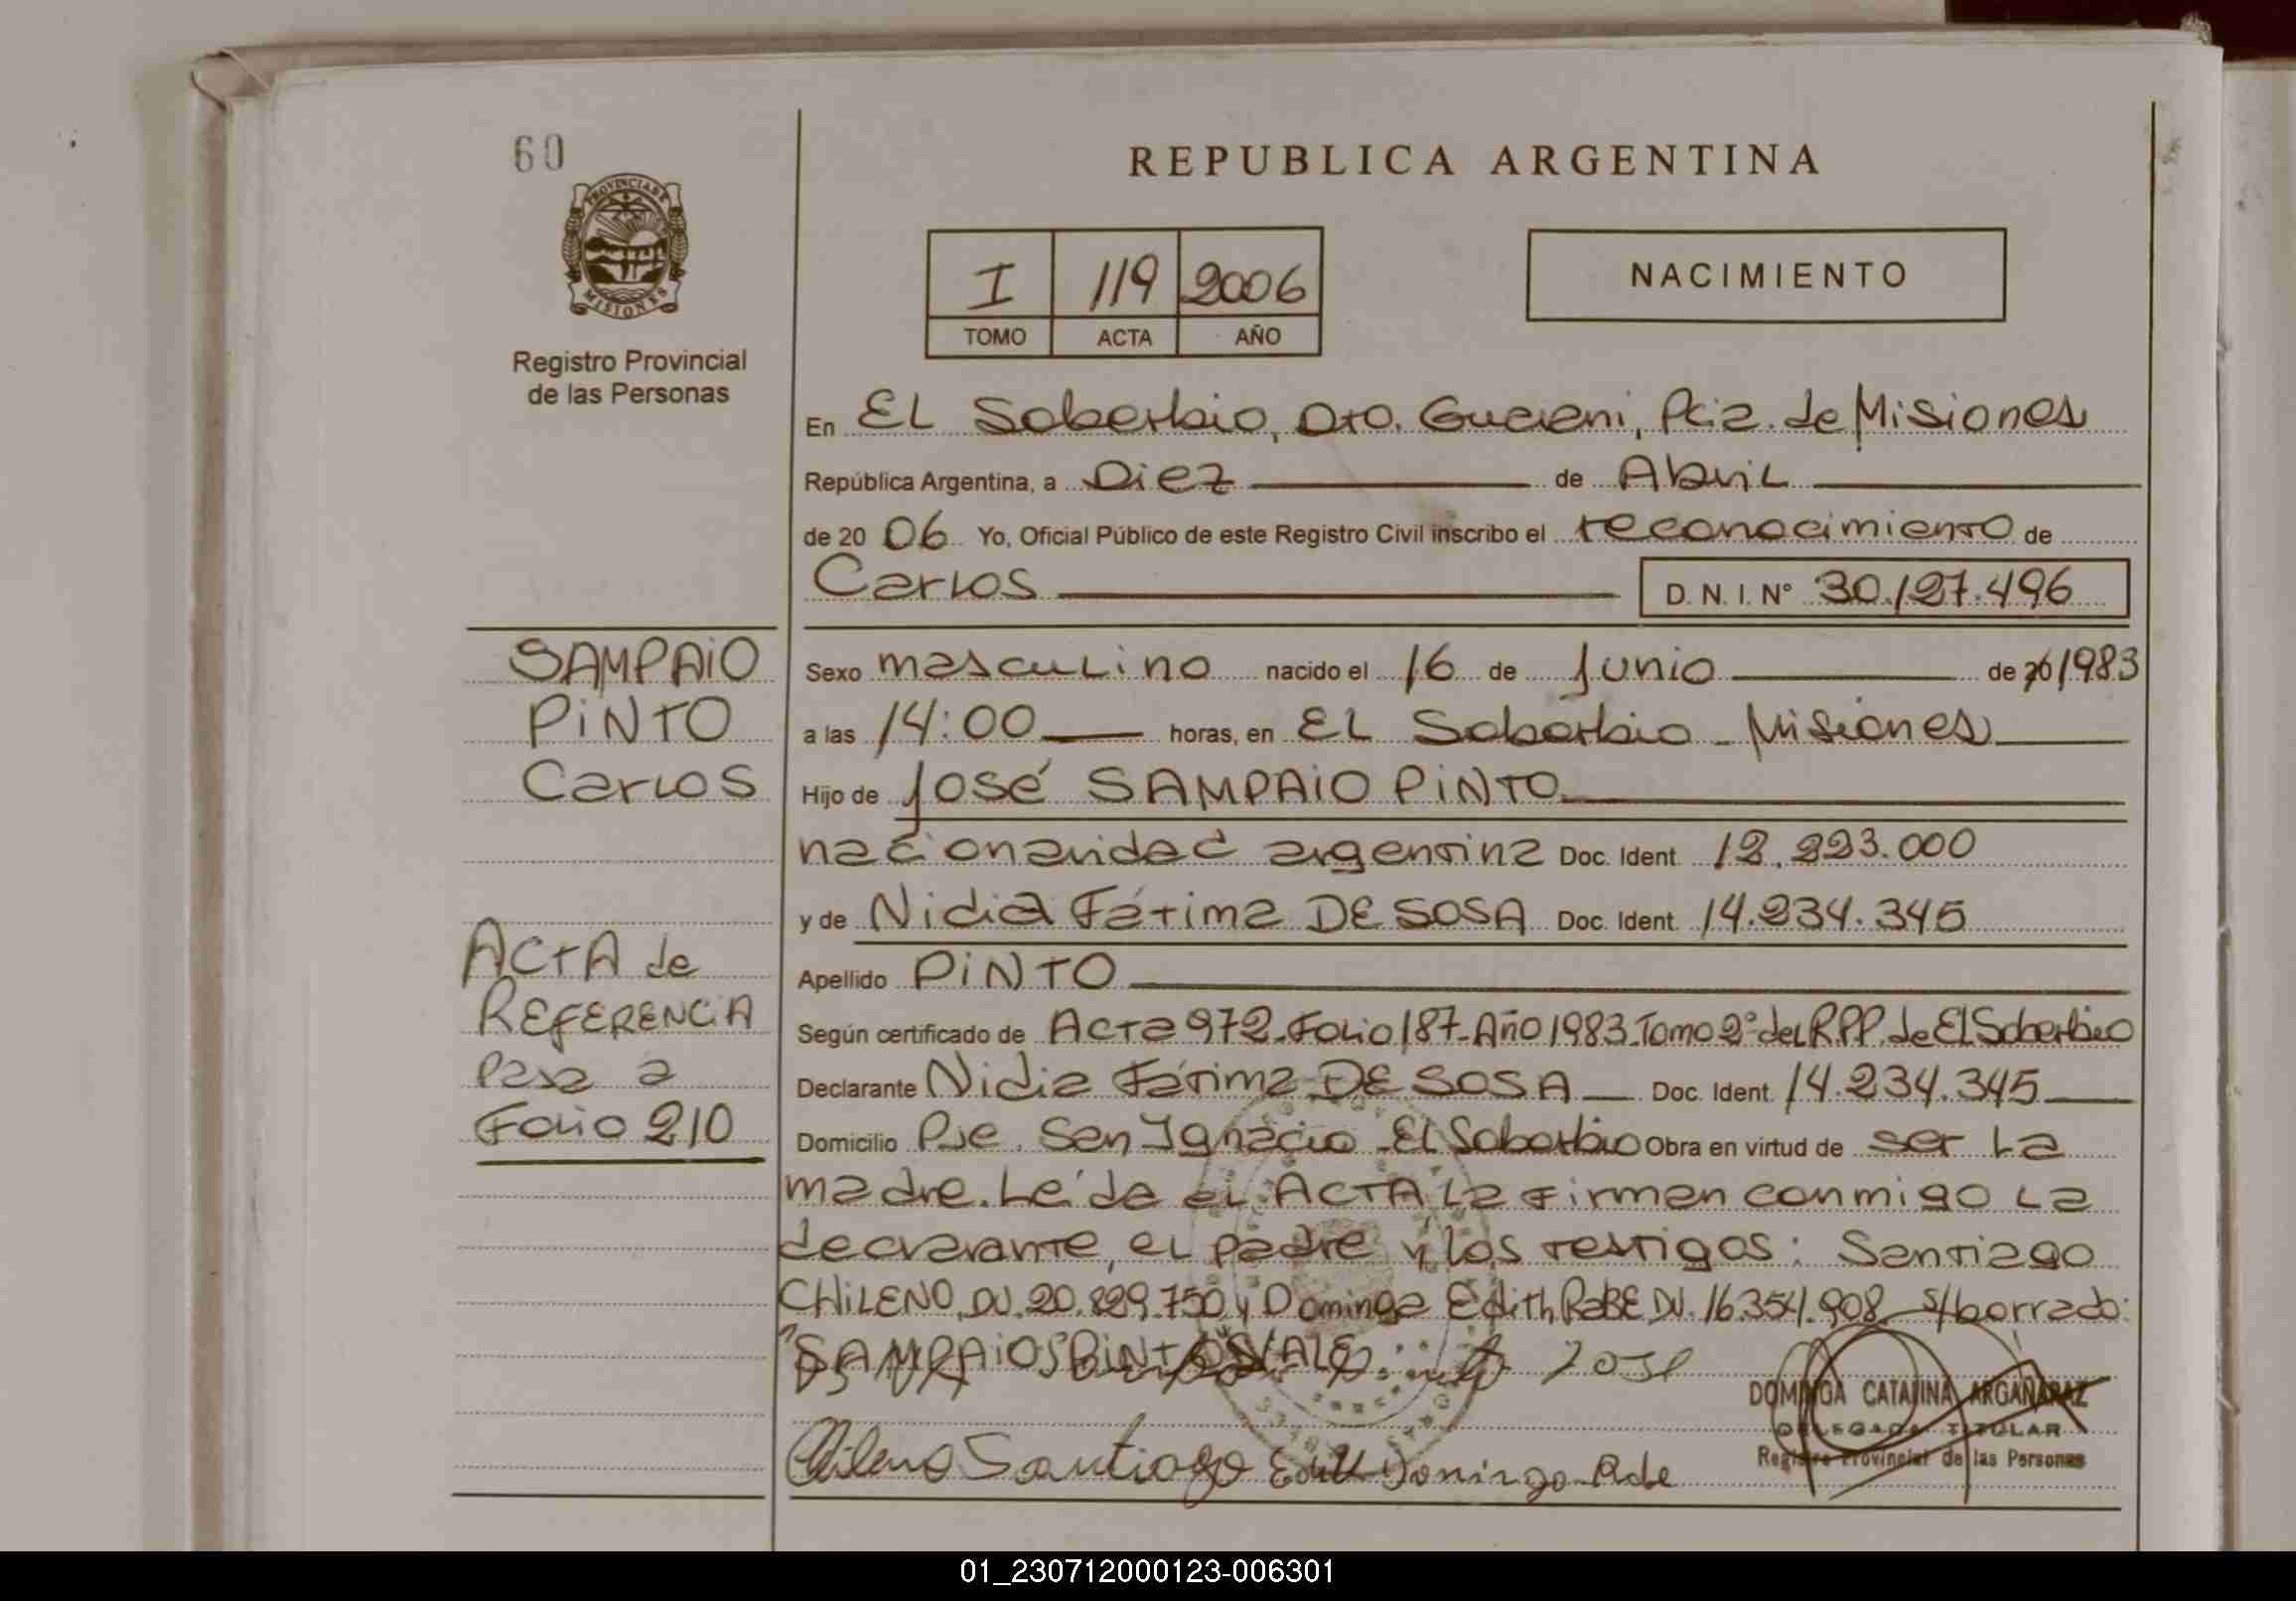 60
PROVINCIA DE
MISIONES
Registro Provincial
de las Personas
REPUBLICA ARGENTINA
I 119 2006
TOMO ACTA AÑO
NACIMIENTO
En EL Soberbio, Dto. Guarani, Pcia. de Misiones
República Argentina, a Diez de Abril
de 20 06 Yo, Oficial Público de este Registro Civil inscribo el reconocimiento de
Carlos D. N. I. N° 30.127.496
SAMPAIO
PINTO
Carlos
Sexo masculino nacido el 16 de Junio de 20 1983
a las 14:00 horas, en EL Soberbio - Misiones
Hijo de José SAMPAIO PINTO
nacionalidad argentina Doc. Ident. 12.223.000
y de Nidia Fátima DE SOSA Doc. Ident. 14.234.345
Apellido PINTO
Según certificado de Acta 972-Folio 187-Año 1983-Tomo 2° del R.P.P. de El Soberbio
Declarante Nidia Fátima DE SOSA Doc. Ident. 14.234.345
Domicilio Pje. San Ignacio - El Soberbio Obra en virtud de ser La
madre. Leída el ACTA La firman conmigo La
declarante, el padre y los testigos: Santiago
CHILENO DU. 20.829.750 y Dominga Edith RABE DU. 16.354.908 s/borrado:
"SAMPAIO PINTO" VALE
Jose
ACTA de
REFERENCIA
Pasa a
Folio 210
Chileno Santiago Edith Dominga Rabe
DOMINGA CATALINA ARGAÑARAZ
DELEGADA TITULAR
Registro Provincial de las Personas
01_230712000123-006301